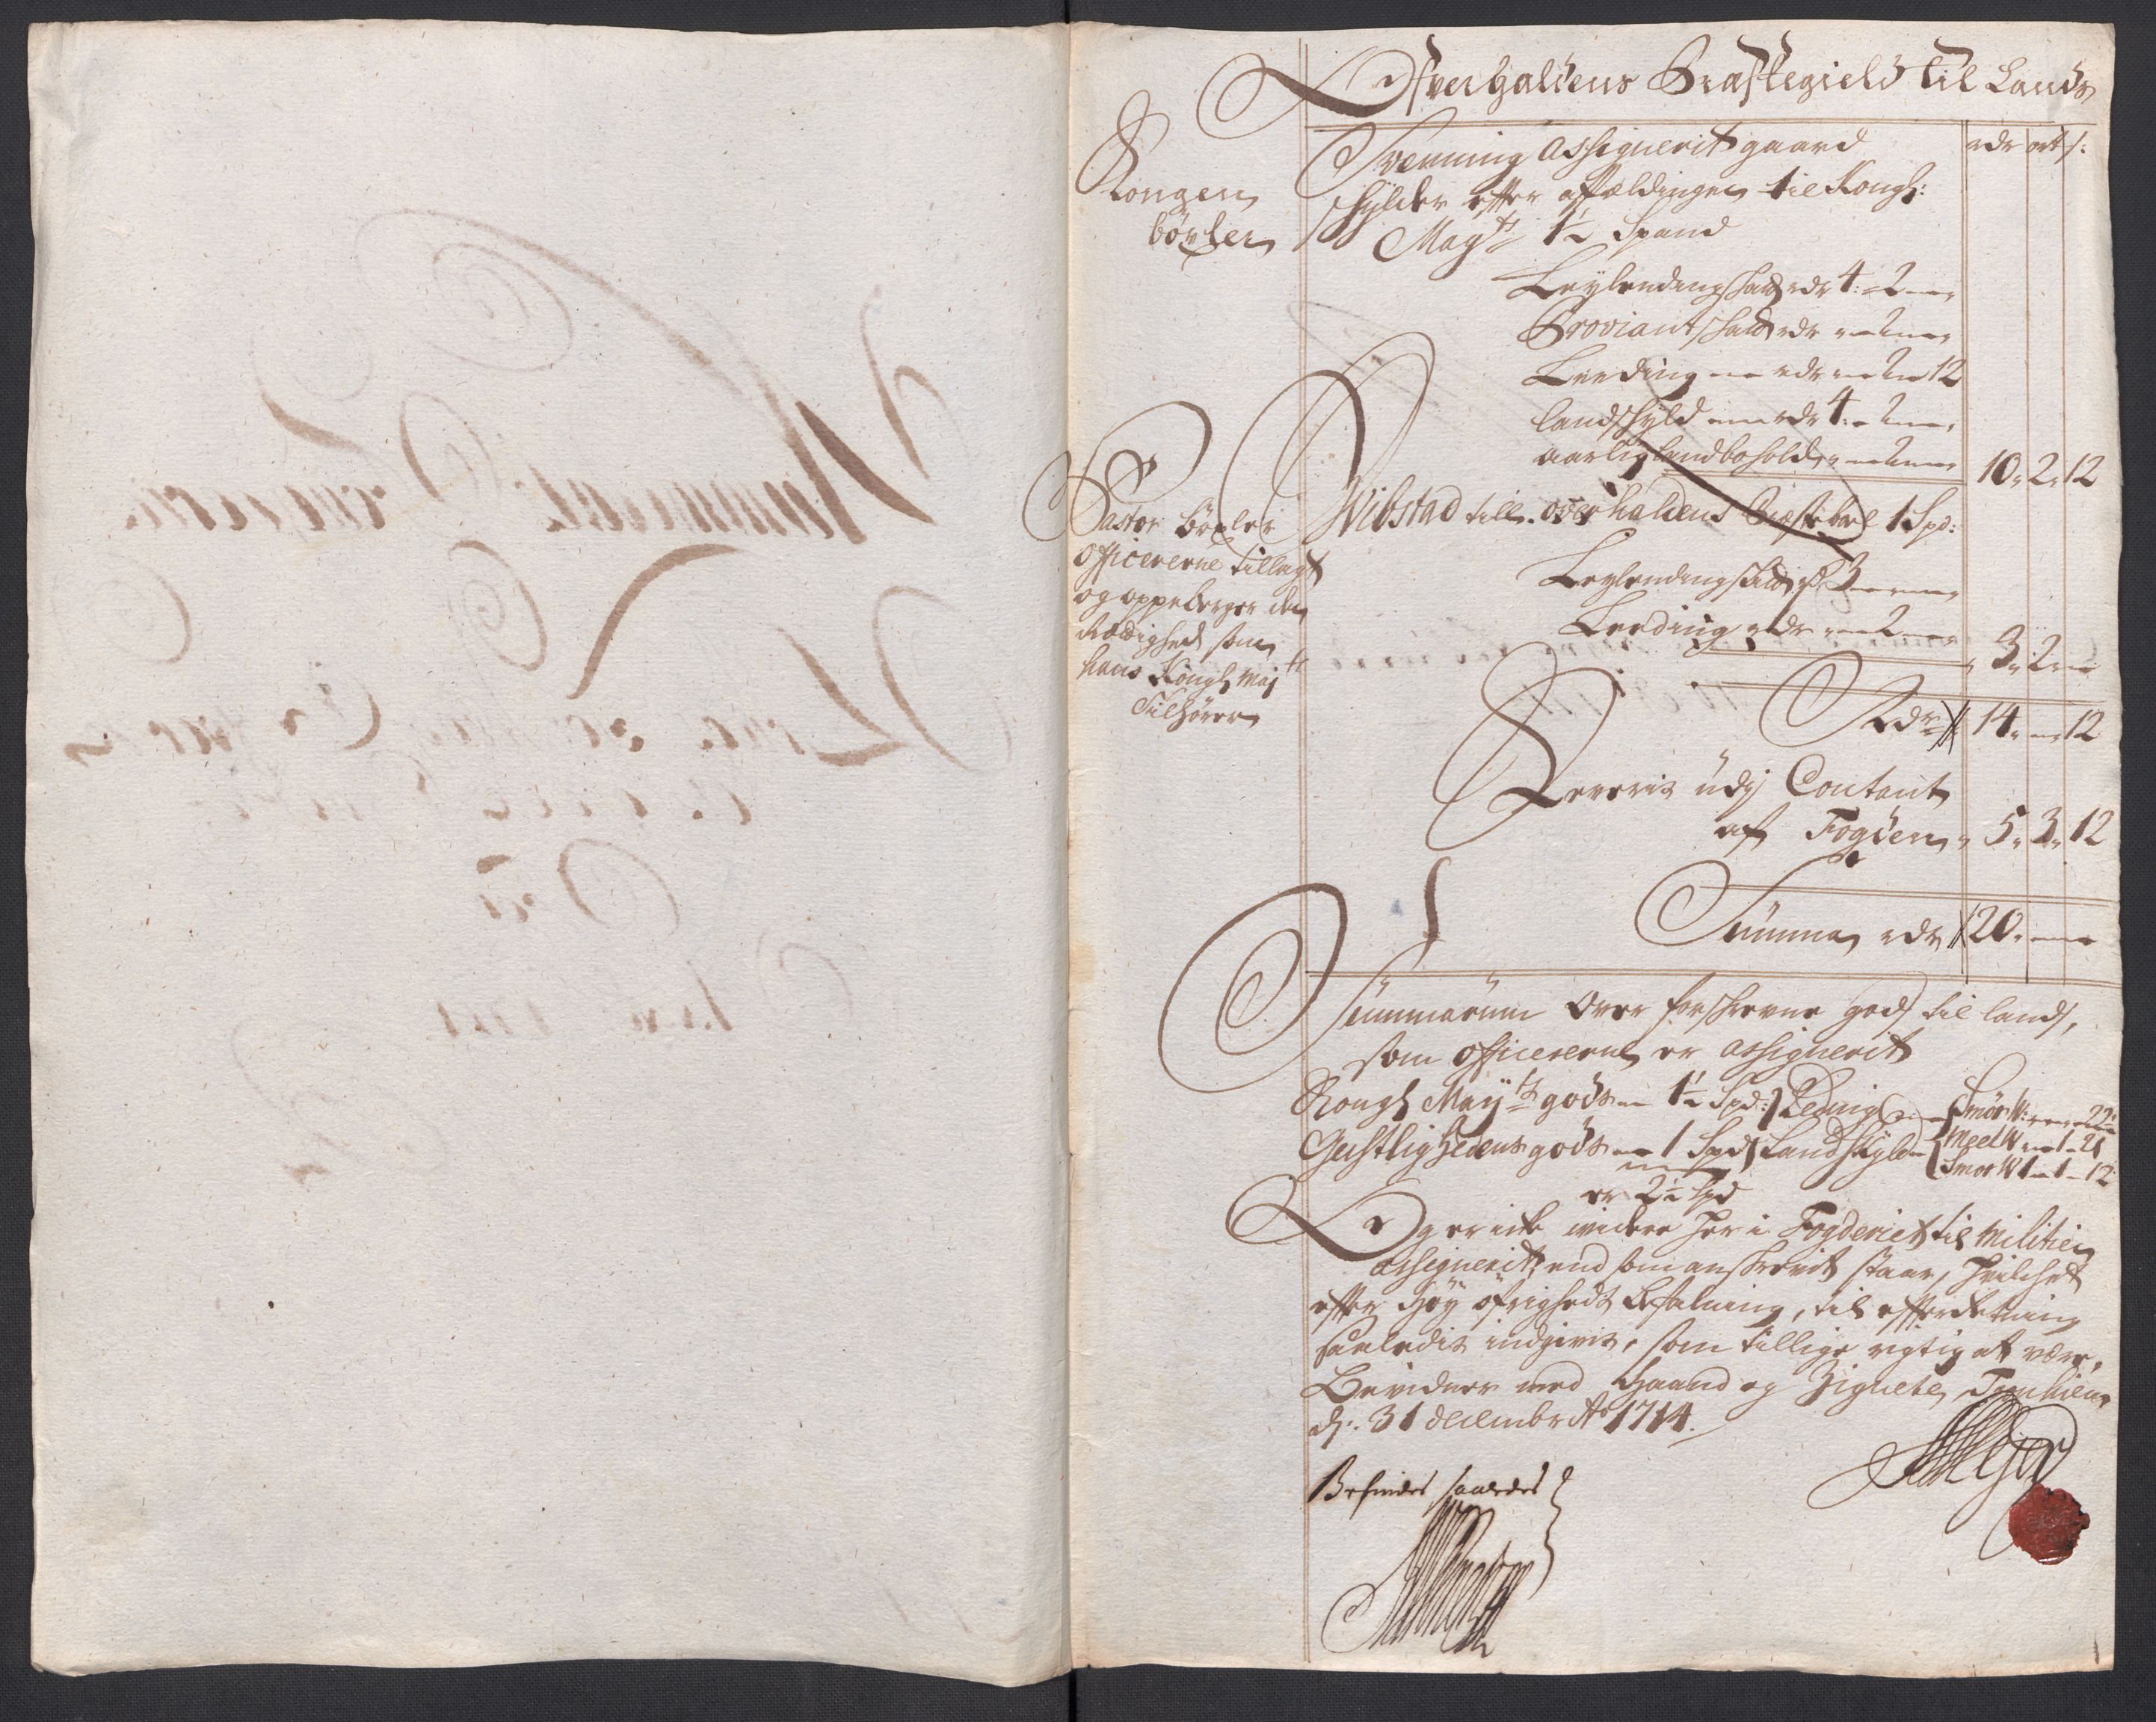 Ofverhaldens Præstegield til Lands
rdr ort s:
Kongen
böxler
Svenning Assignerit gaard
schylder efter affældingen til Kongl:
Mayts 1½ Spand
Leylendingschatt rdr 4:-2---
Proviantschatt rdr --2---
Leeding -- rdr --2--12
landschyld --- rdr 4:-2---
aarlig landboehold ---2---
10,, 2,, 12
Pastor böxler
officererne tillagt
og oppeberger den
rættighed som
hans Kongl Mayts
Tilhörer
Wibstad till. overhaldens Præsteboel 1 Spd:
Leylendingschatt rd 3----
Leeding rdr --2---
3,, 2,, -
Rdr 14,, - 12
Leveris udj Contant
af Fogden,, 5,, 3,, 12
Summa rdr 120,, --
Summarum Over forschrevne gods til lands,
som officererne er Assignerit
Kongl Mayts gods -- 1½ Spd: Leding - Smör W: ---22:
Geistlighedens gods -- 1 Spd Landskyld - Meel W --1-21
Smör W 1-1-12
er 2½ Spd
Og er icke widere her i Fogderiet til Militien
Assignerit, end som anschrevit staar, hvilchet
efter Höy öfrigheds Befalning, til efterretning
saaledis indgivis, som tillige rigtig at være,
Bevidner med Haand og Zignete,
d: 31 decembr Ao 1714.
Befindes saaledes